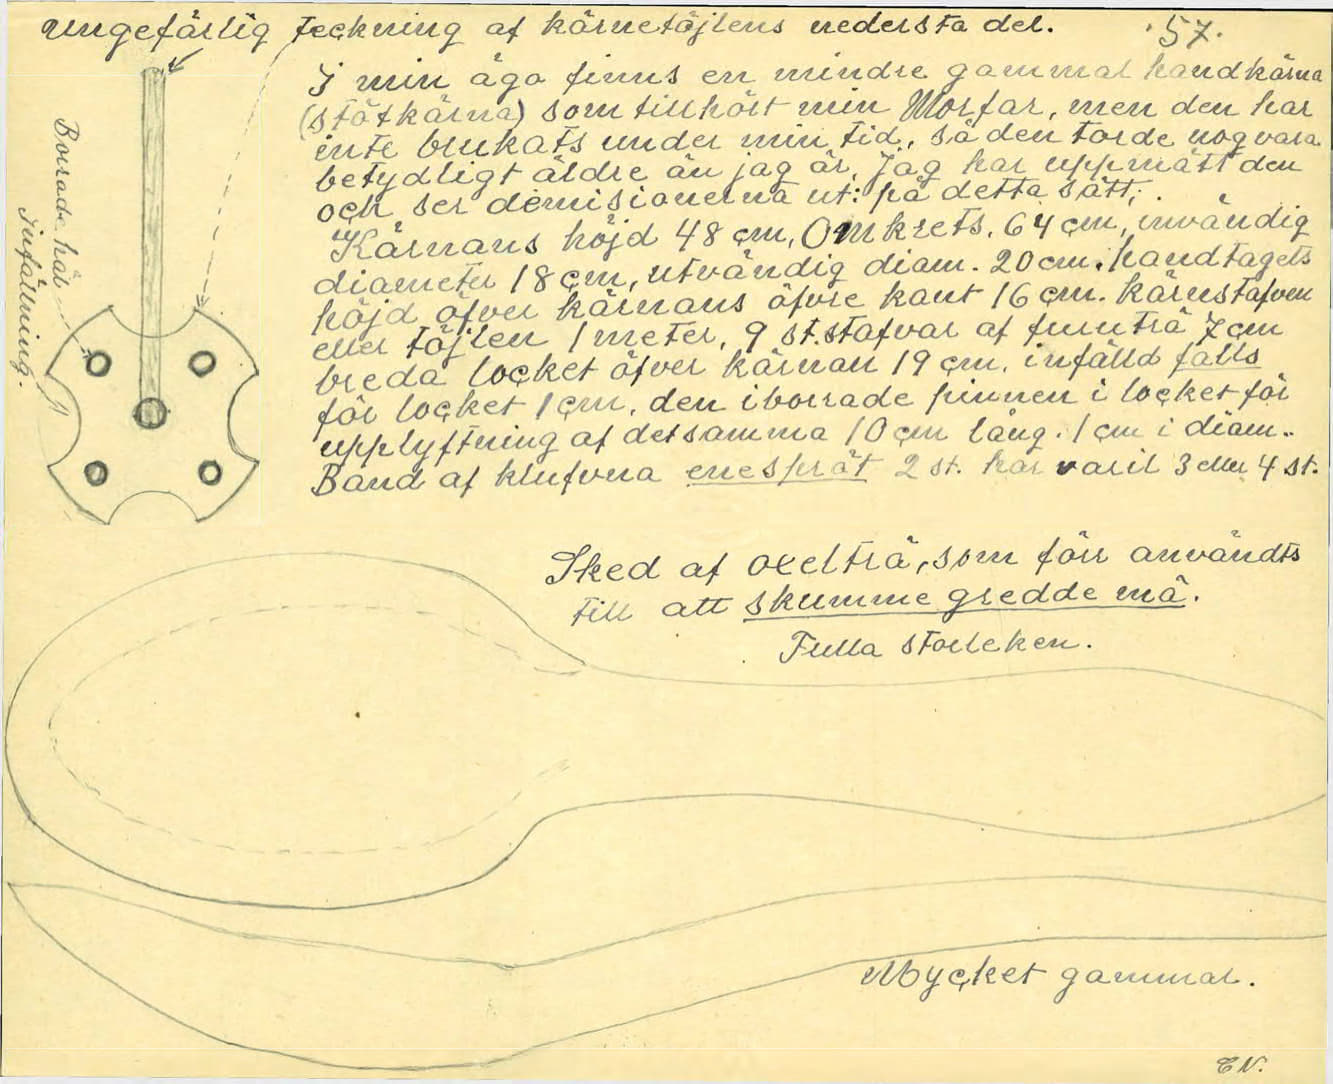 Ungefärlig teckning af kärnetöjlens nedersta del.
57.
I min ägo finns en mindre gammal handkärna
(stötkärna) som tillhört min Morfar, men den har
inte brukats under min tid, så den torde nog vara
betydligt äldre än jag är. Jag har uppmätt den
och ser demisionerna ut: på detta sätt;.
Kärnans höjd 48 cm, Omkrets. 64 cm, invändig
diameter 18 cm, utvändig diam. 20 cm. handtagets
höjd öfver kärnans öfvre kant 16 cm. kärnstafven
eller töjlen 1 meter, 9 st. stafvar af furuträ 7 cm
breda locket öfver kärnan 19 cm. infälld falls
för locket 1 cm, den iborrade pinnen i locket för
upplyftning af detsamma 10 cm lång. 1 cm i diam..
Band af klufvna enespröt 2 st. har varit 3 eller 4 st.
Borrade hål
Infällning.
Sked af oxelträ, som förr användts
till att skumme gredde mä.
Fulla storleken.
Mycket gammal.
E N.